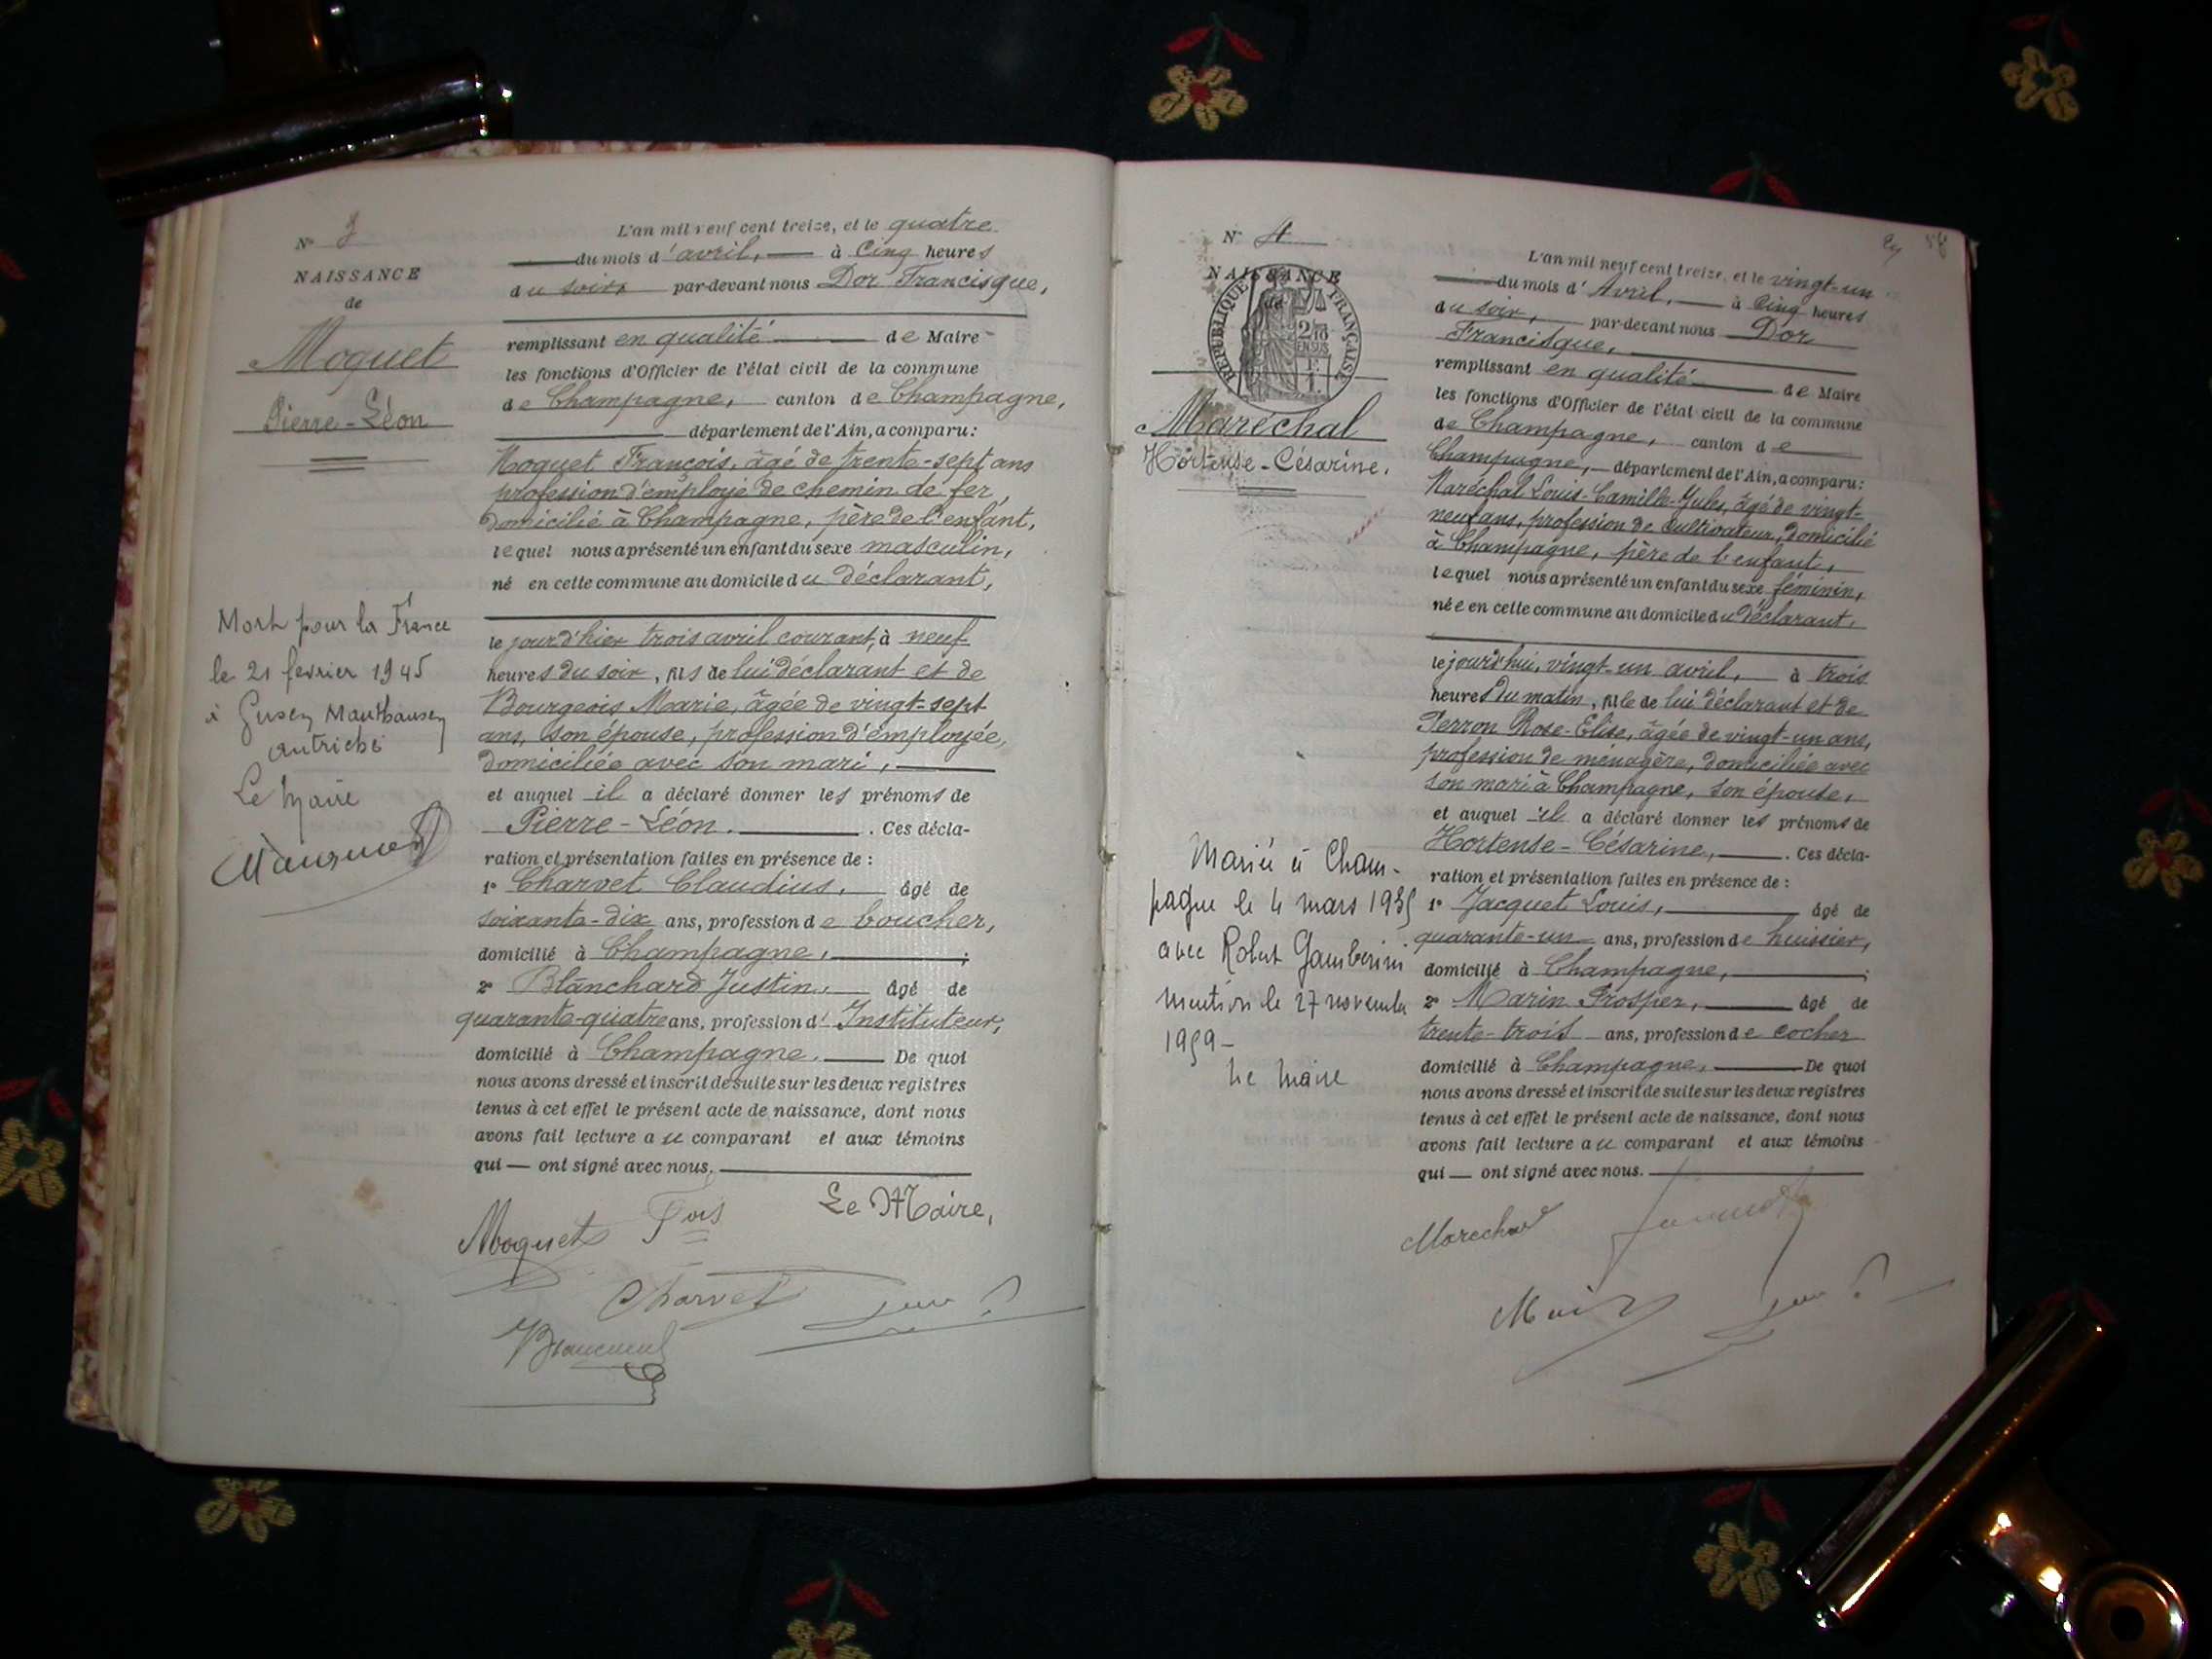 N° 3
NAISSANCE
de
Moquet
Pierre-Léon
Mort pour la France
le 21 fevrier 1945
à Gusen Mauthausen
Autriche
Le Maire
L'an mil neuf cent treize, et le quatre
du mois d'avril, à cinq heures
du soir, par-devant nous Dor Francisque,
remplissant en qualité de Maire
les fonctions d'Officier de l'état civil de la commune
de Champagne, canton de Champagne,
département de l'Ain, a comparu:
Moquet François, âgé de trente-sept ans
profession d'employé de chemin de fer,
domicilié à Champagne, père de l'enfant,
lequel nous a présenté un enfant du sexe masculin,
né en cette commune au domicile du déclarant,
le jour d'hier trois avril courant, à neuf
heures du soir, fils de lui déclarant et de
Bourgeois Marie, âgée de vingt-sept
ans, son épouse, profession d'employée,
domiciliée avec son mari,
et auquel il a déclaré donner les prénoms de
Pierre-Léon. . Ces décla-
ration et présentation faites en présence de :
1° Charvet Claudius, âgé de
soixante-dix ans, profession de boucher,
domicilié à Champagne, ;
2° Blanchard Justin, âgé de
quarante-quatre ans, profession d'Instituteur,
domicilié à Champagne. De quoi
nous avons dressé et inscrit de suite sur les deux registres
tenus à cet effet le présent acte de naissance, dont nous
avons fait lecture au comparant et aux témoins
qui — ont signé avec nous.
Le Maire,
Moquet Fois
Charvet
N° 4
NAISSANCE
de
RÉPUBLIQUE FRANÇAISE
2/10
EN SUS
Maréchal
Hortense-Césarine,
Mariée à Cham-
pagne le 4 mars 1935
avec Robert Gamberini
mention le 27 novembre
1959 -
Le Maire
L'an mil neuf cent treize, et le vingt-un
du mois d'Avril, à cinq heures
du soir, par-devant nous Dor
Francisque,
remplissant en qualité de Maire
les fonctions d'Officier de l'état civil de la commune
de Champagne, canton de
Champagne, département de l'Ain, a comparu:
Maréchal Louis-Camille-Jules, âgé de vingt-
neuf ans, profession de cultivateur, domicilié
à Champagne, père de l'enfant,
lequel nous a présenté un enfant du sexe féminin,
née en cette commune au domicile du déclarant,
le jourd'hui, vingt-un avril, à trois
heures du matin, fille de lui déclarant et de
Perron Rose-Elise, âgée de vingt-un ans,
profession de ménagère, domiciliée avec
son mari à Champagne, son épouse,
et auquel il a déclaré donner les prénoms de
Hortense-Césarine, . Ces décla-
ration et présentation faites en présence de :
1° Jacquet Louis, âgé de
quarante-un ans, profession de huissier,
domicilié à Champagne, ;
2° Marin Prosper, âgé de
trente-trois ans, profession de cocher
domicilié à Champagne, De quoi
nous avons dressé et inscrit de suite sur les deux registres
tenus à cet effet le présent acte de naissance, dont nous
avons fait lecture au comparant et aux témoins
qui — ont signé avec nous.
Marechal